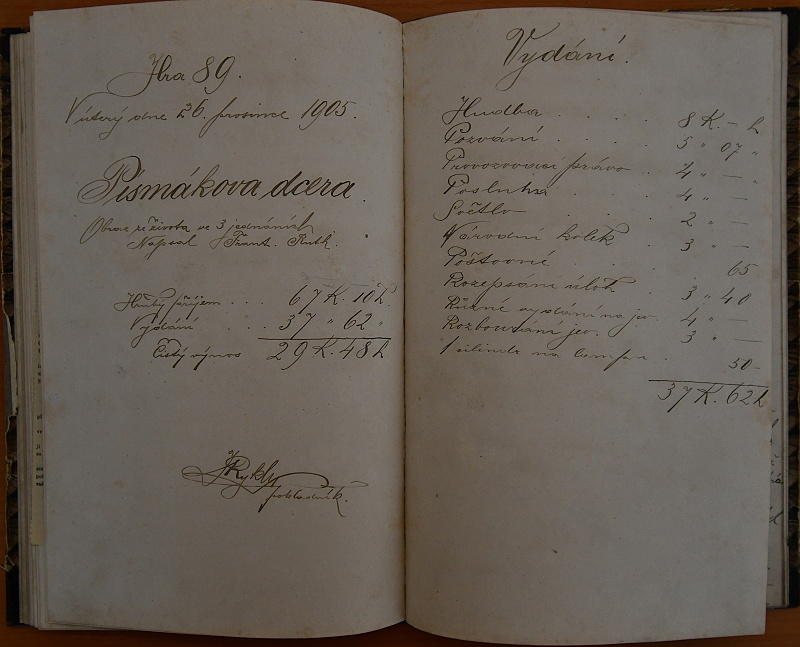 Hra 89.
V úterý dne 26. prosince 1905.
Písmákova dcera.
Obraz ze života ve 3 jednáních
Napsal Frant. Ruth.
Hrubý příjem . . . 67 K. 10 h.
Vydání . . . 37 " 62 "
Čistý výnos 29 K. 48 h
JRykly
pokladník.
Vydání.
Hudba . . . . . 8 K. – h
Pozvání . . . . 5 " 07 "
Provozovací právo . . 4 " — "
Posluha . . . . 4 " —
Světlo . . . . 2 " —
Národní kolek . . 3 " —
Poštovné . . . . 65
Rozepsání úloh . . 3 " 40
Různé vydání na jev. 4 " —
Rozbourání jev. . . 3 " —
1 cilindr na lampu . . 50 –
37 K. 62 h